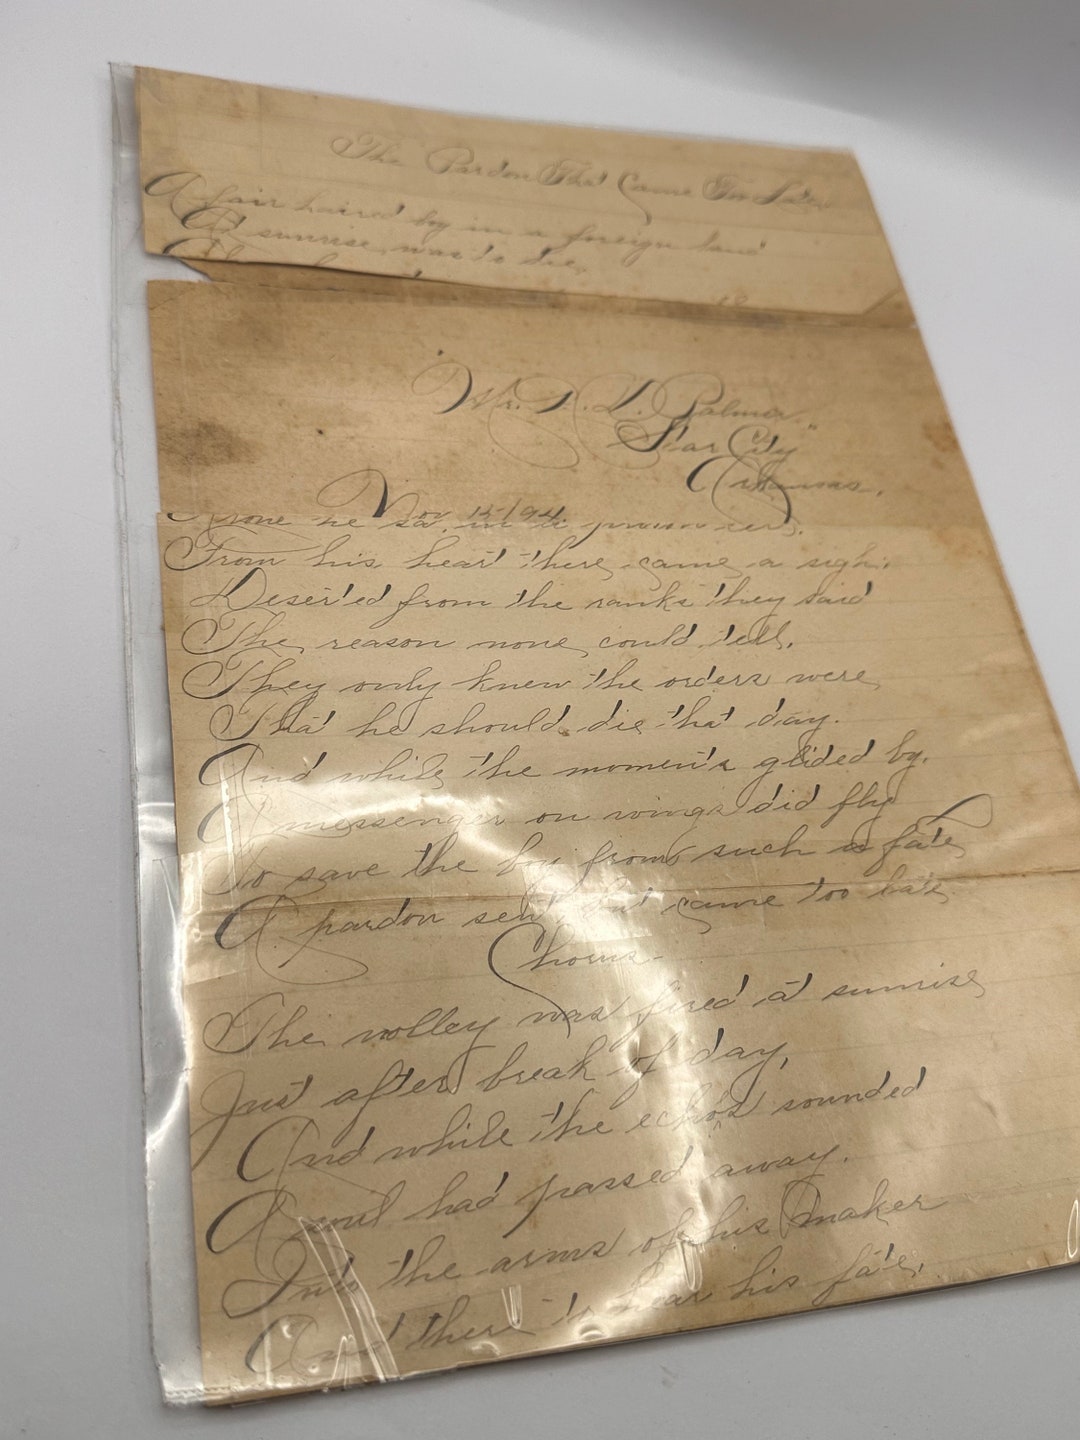 The Pardon That Came Too Late
A fair haired boy in a foreign land
At sunrise, was to die,
"Mr. L. Palmer."
Star City
Arkansas.
Nov 15/94.
From his heart there came a sigh.
Deserted from the ranks they said
The reason none could tell.
They only knew the orders were
That he should die that day.
And while the moments glided by.
A messenger on wings did fly
To save the boy from such a fate
A pardon sent, but came too late.
Chorus.
The volley was fired at sunrise
Just after break of day,
And while the echos sounded
A soul had passed away.
Into the arms of his maker
And there to hear his fate,